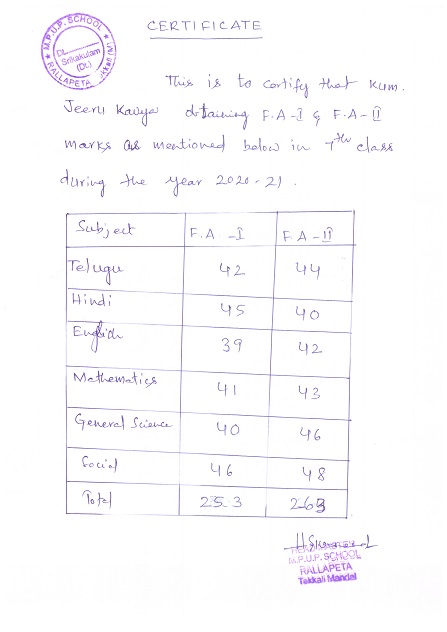 M.P.U.P. SCHOOL
Dt.
Srikakulam
(Dt.)
RALLAPETA
CERTIFICATE
This is to certify that Kum.
Jeeru Kavya obtaining F.A-I & F.A-II
marks as mentioned below in 7th class
during the year 2020-21.
Subject F.A.-I F.A-II
Telugu 42 44
Hindi 45 40
English 39 42
Mathematics 41 43
General Science 40 46
Social 46 48
Total 253 263
M.P.U.P. SCHOOL
RALLAPETA
Tekkali Mandal